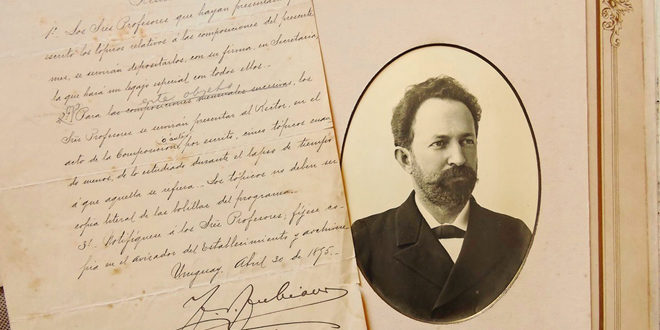 1º. Los Sres Profesores que hayan presentado
escrito los tópicos relativos á las composiciones del presente
mes, se servirán depositarlos, con su firma, en Secretaría,
la que hará un legajo especial con todos ellos.
este objeto
2º. Para las composiciones mensuales sucesivas, los
Sres Profesores se servirán presentar al Rector, en el
ó antes
acto de la Composición por escrito, cinco tópicos cuan
do menos, de lo estudiado durante el lapso de tiempo
á que aquella se refiera. Los tópicos no deben ser
copia literal de las bolillas del programa.
3º. Notifíquese á los Sres Profesores, fíjese co-
pia en el avisador del Establecimiento y archívese
Uruguay, Abril 30 de 1895.